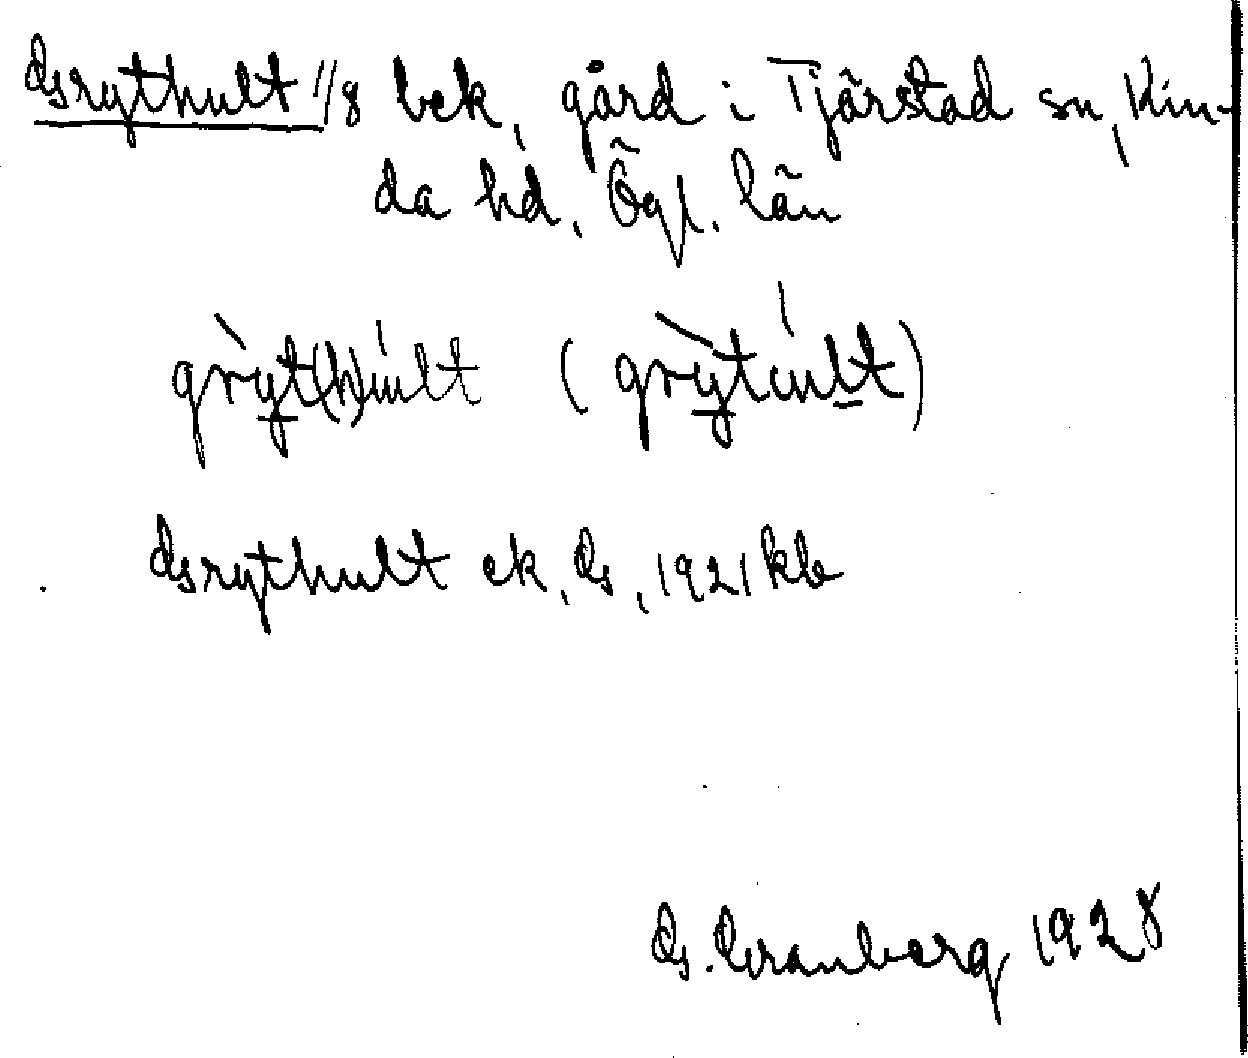 Grythult 1/8 bek, gård i Tjärstad sn, Kin-
da hd, Ögl. län
gry̠t(h)ult (gry̠tul̠t)
Grythult ek, G, 1921 kb
G. Granberg 1928